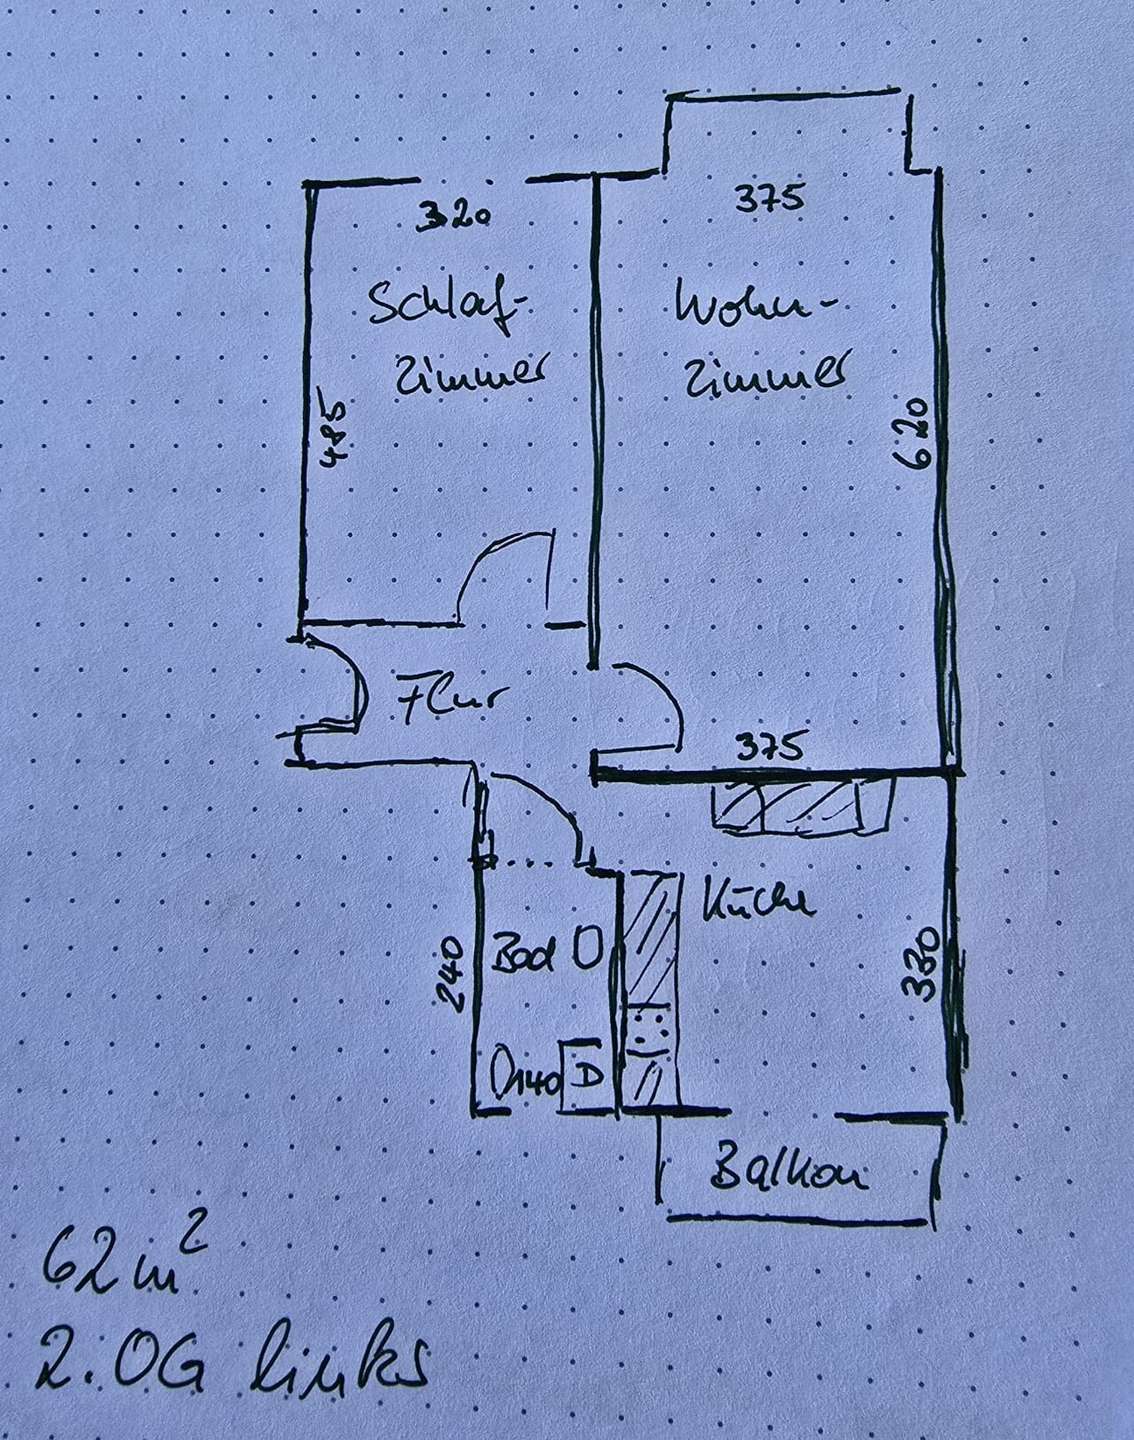 375
320
Schlaf-
zimmer
Wohn-
zimmer
485
620
Flur
375
Küche
Bad
240
330
140
D
Balkon
62 m²
2. OG links